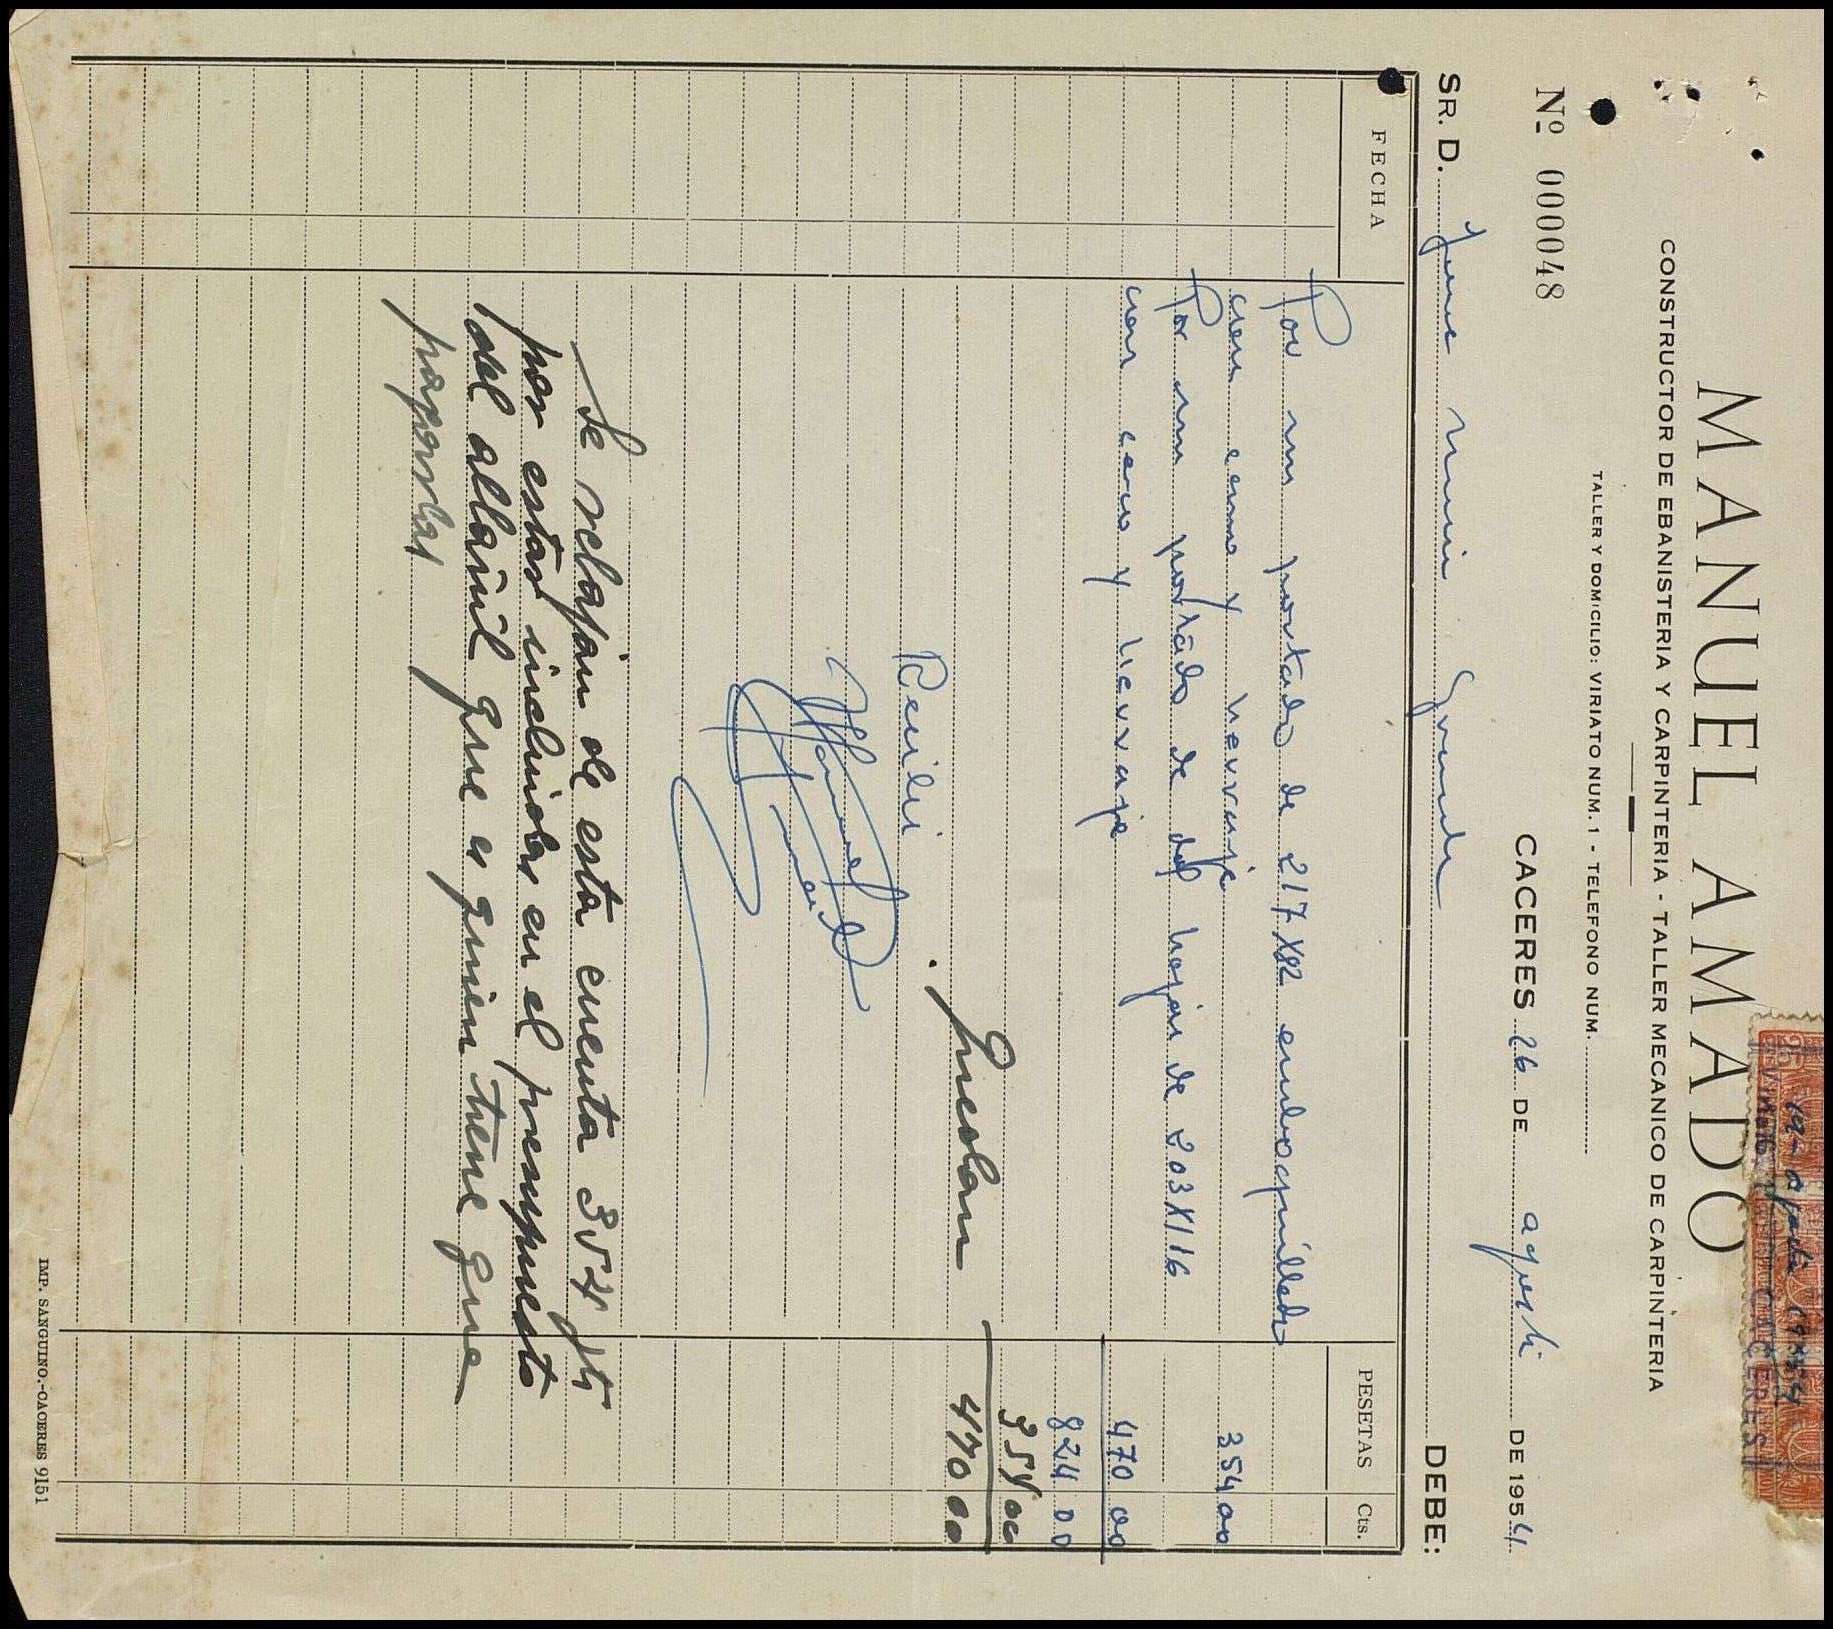 MANUEL AMADO
CONSTRUCTOR DE EBANISTERIA Y CARPINTERIA - TALLER MECANICO DE CARPINTERIA
TALLER Y DOMICILIO: VIRIATO NUM. 1 - TELEFONO NUM.
Nº 000048
CACERES 26 DE agosto DE 1954
SR. D. DEBE:
FECHA PESETAS Cts.
Por un portado de 217X82 emboquillado
con cerco y herraje 354 00
Por un portado de dos hojas de 203X116
con cerco y herraje 470 00
824 00
354 00
Quedan 470 00
Recibi
Manuel Amado
Se rebajan de esta cuenta 354 pts
por estar incluidas en el presupuesto
del albañil que es quien tiene que
pagarlas
IMP. SANGUINO.-CACERES 9151